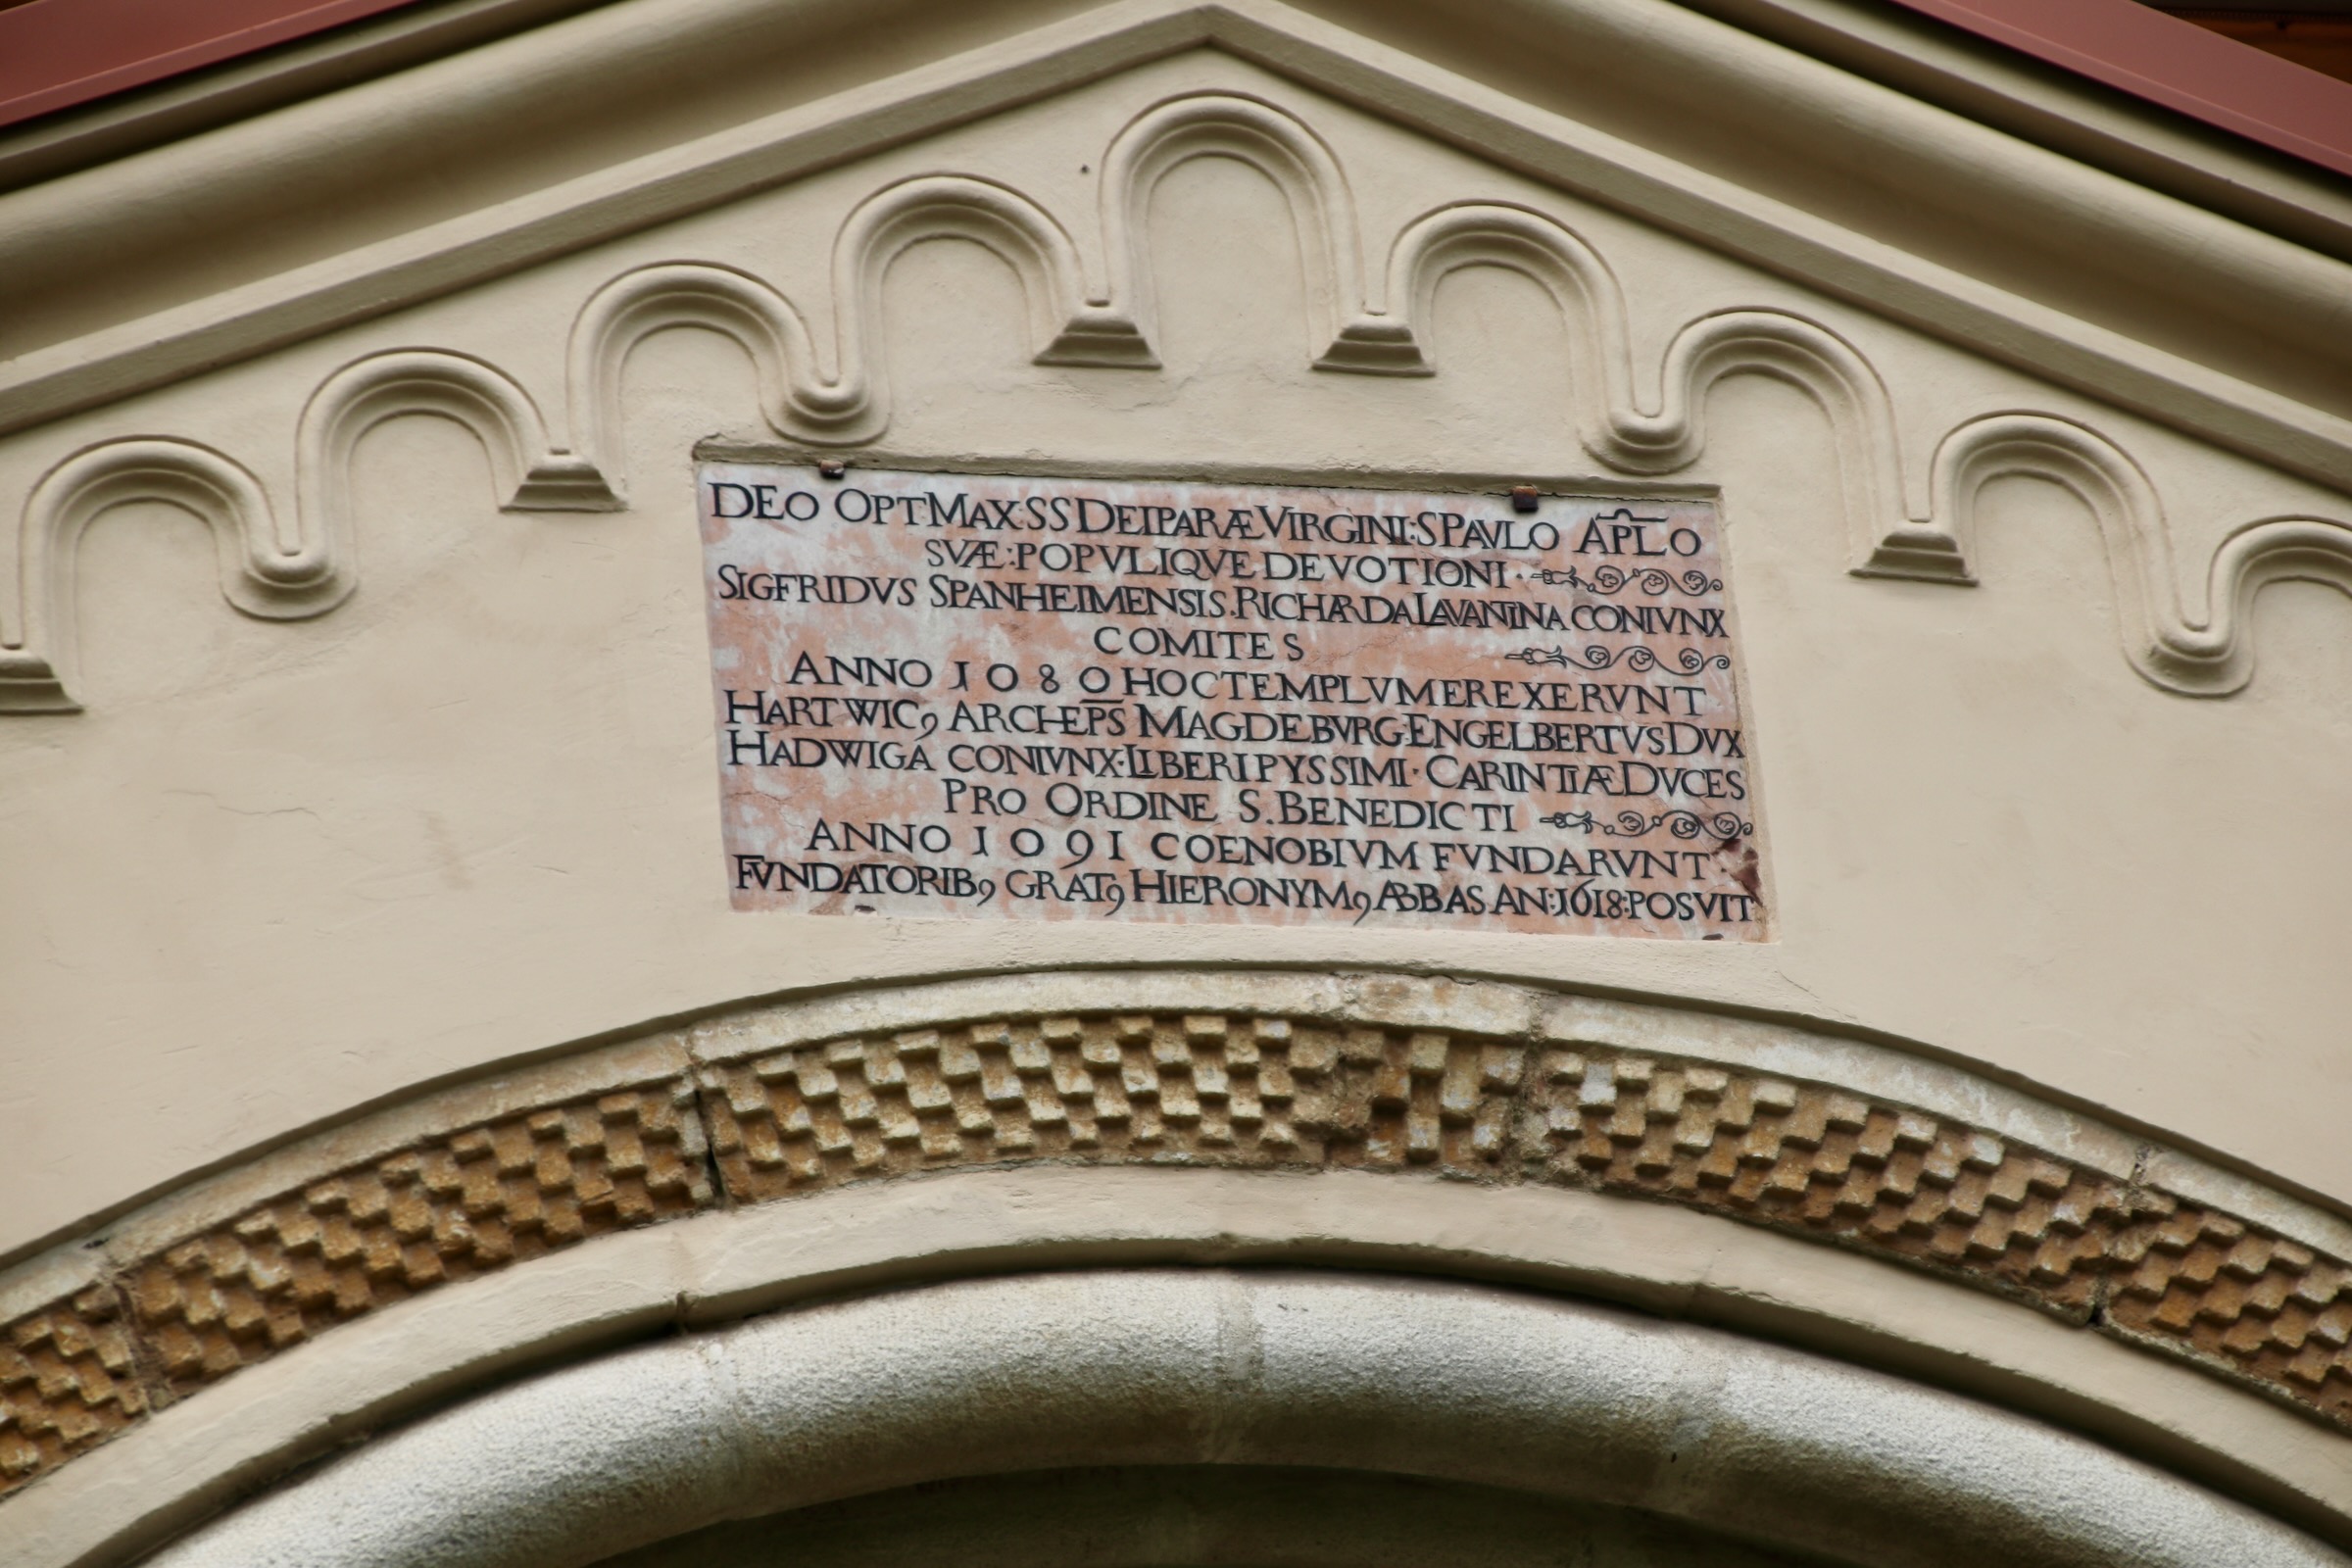 DEO OPT MAX: SS DEIPARÆ VIRGINI: S PAVLO APLO
SVÆ: POPVLIQVE DEVOTIONI ·
SIGFRIDVS SPANHEIMENSIS. RICHARDA LAVANTINA CONIVNX
COMITES
ANNO 1080 HOC TEMPLVM EREXERVNT
HARTWICꝰ ARCHEPS MAGDEBVRG: ENGELBERTVS DVX
HADWIGA CONIVNX · LIBERI PYSSIMI · CARINTIÆ DVCES
PRO ORDINE S. BENEDICTI
ANNO 1091 COENOBIVM FVNDARVNT
FVNDATORIBꝰ GRATꝰ HIERONYMꝰ ABBAS AN: 1618: POSVIT